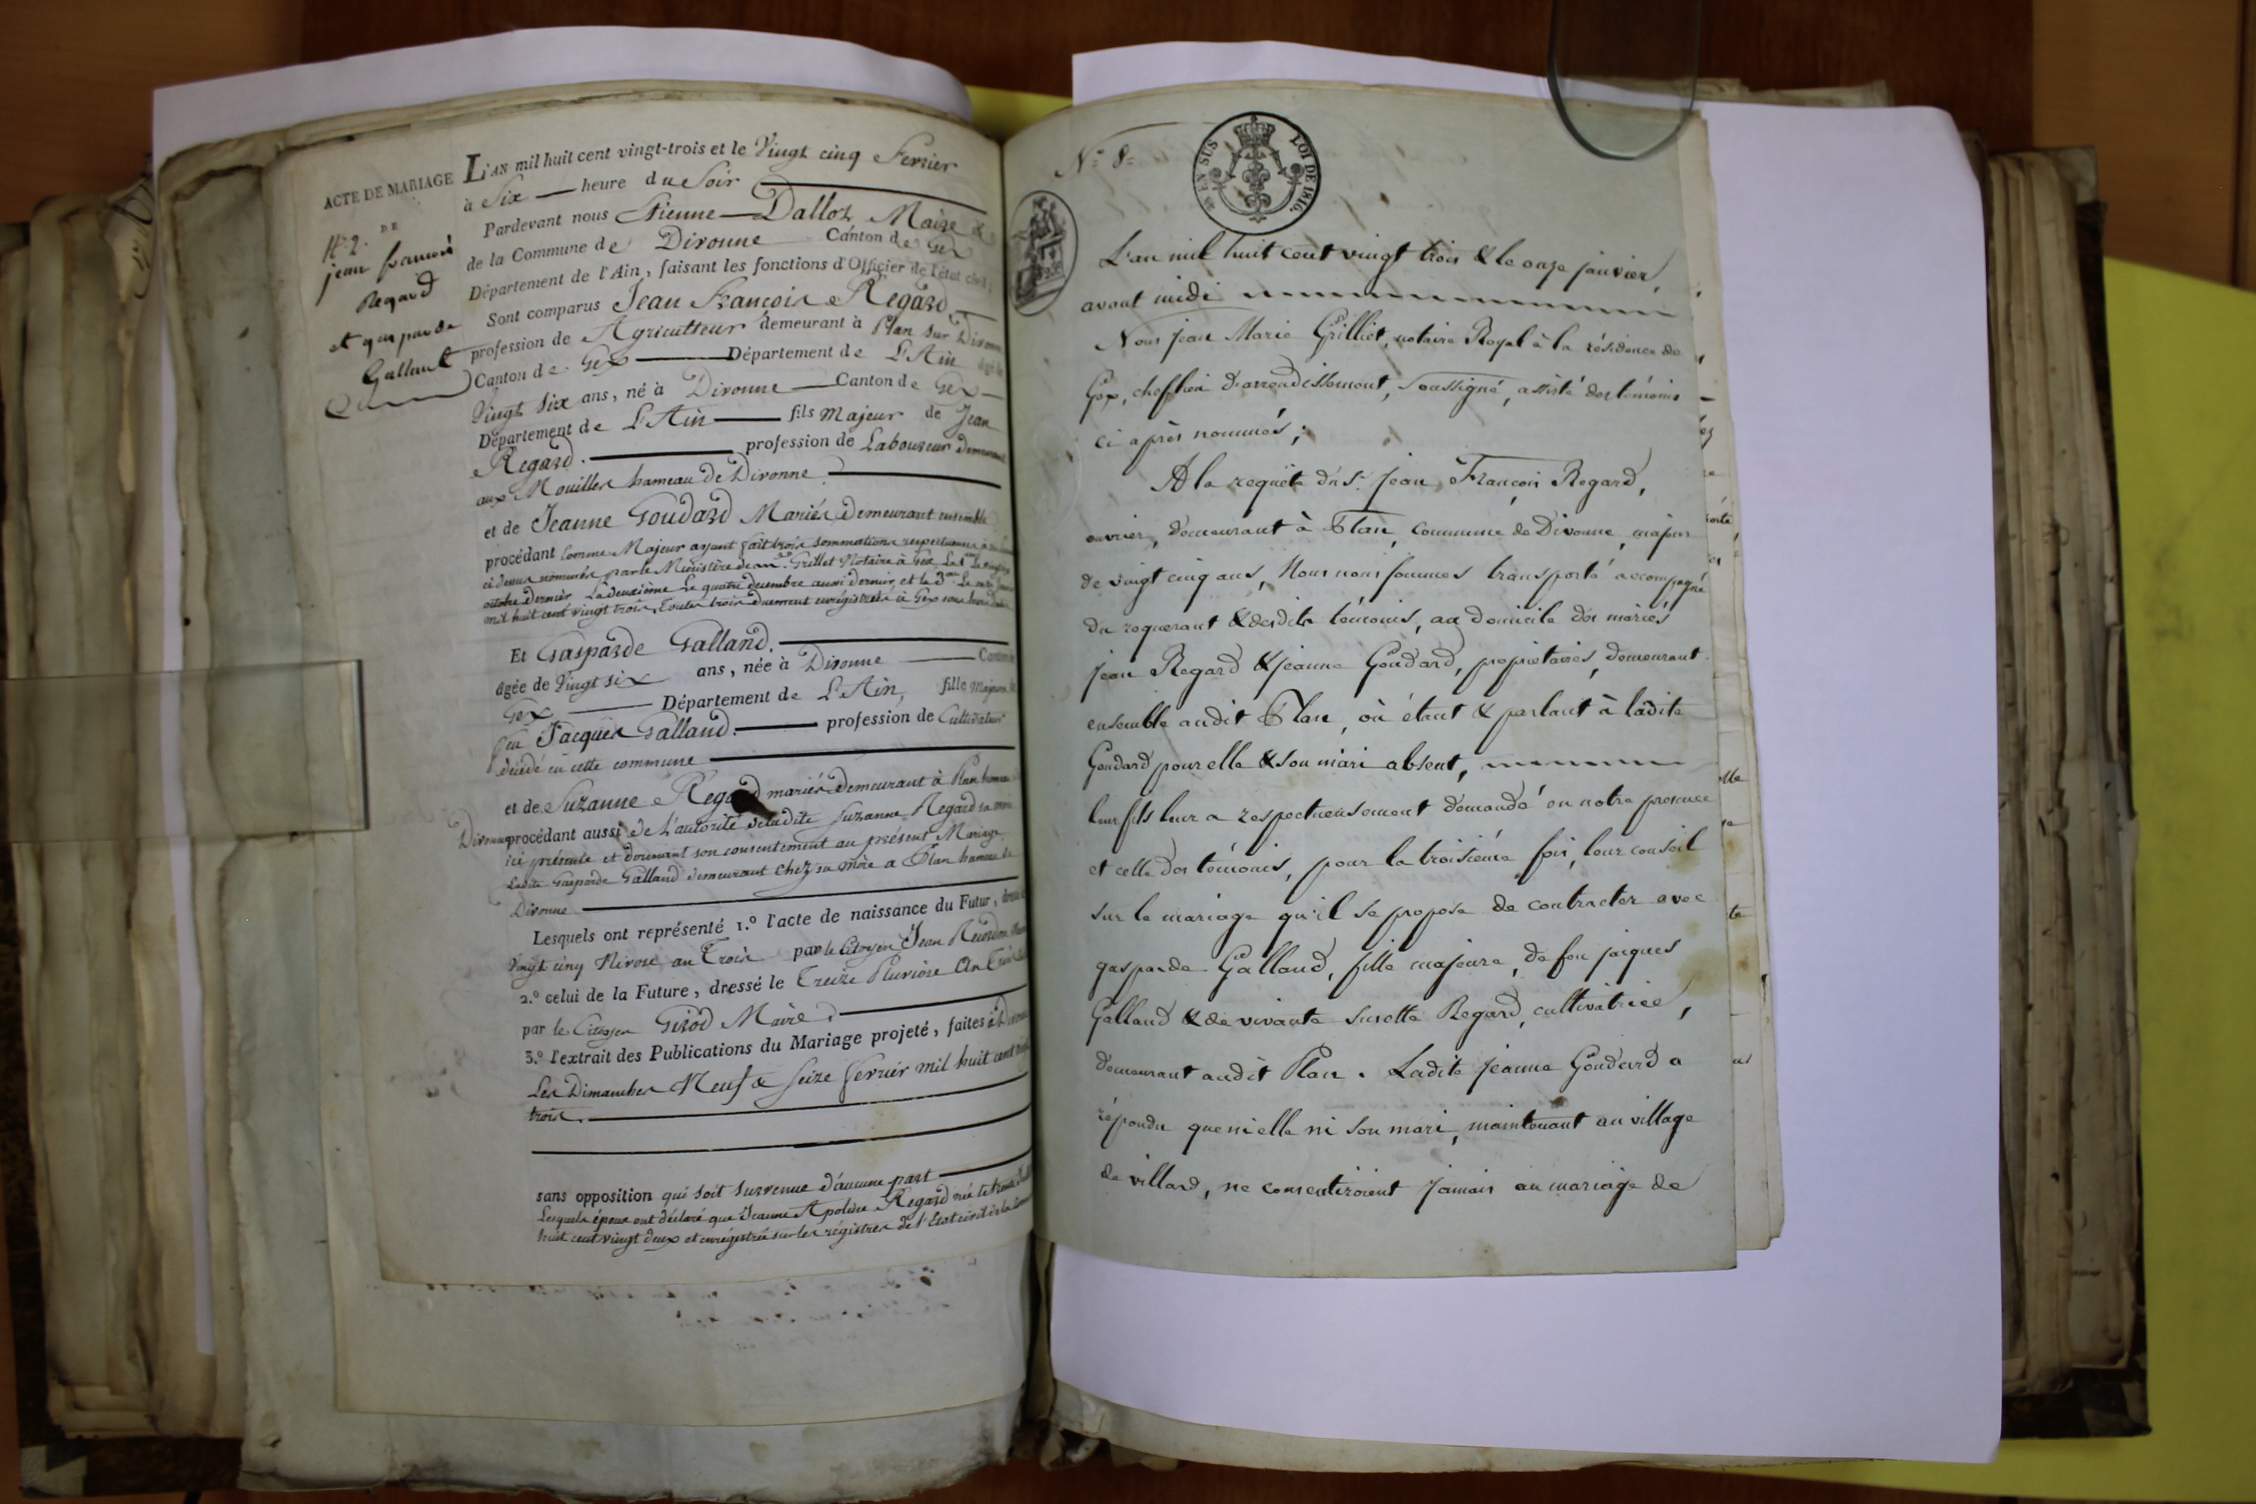 ACTE DE MARIAGE
DE
N.º 2.
jean francois
Regard
et gasparde
Galland
L'AN mil huit cent vingt-trois et le Vingt cinq Fevrier
à Six heure du Soir
Pardevant nous Etienne Dalloz Maire
de la Commune de Divonne Canton de Gex
Département de l'Ain, faisant les fonctions d'Officier de l'état civil,
Sont comparus Jean François Regard
profession de Agriculteur demeurant à Plan sur Divonne
Canton de Gex Département de L'Ain âgé de
Vingt six ans, né à Divonne Canton de Gex
Département de L'Ain fils Majeur de Jean
Regard. profession de Laboureur demeurant
aux Mouilles hameau de Divonne
et de Jeanne Goudard Mariés demeurant ensemble
procédant comme Majeur ayant fait trois sommations respectueuses
ci dessus nommés par le Ministère de Grillet Notaire à Gex La
octobre dernier La deuxième Le quatre décembre aussi dernier et la 3.me Le onze
mil huit cent vingt trois, toutes trois duement enrégistrées à Gex
Et Gasparde Galland.
âgée de Vingt six ans, née à Divonne Canton
Gex Département de L'Ain, fille Majeure
feu Jacques Galland. profession de Cultivateur
décédé en cette commune
et de Suzanne Regard mariés demeurant à Plan hameau
Divonne procédant aussi de L'autorité de ladite Suzanne Regard sa mère
ici présente et donnant son consentement au présent Mariage
Ladite Gasparde Galland demeurant chez sa mère a Plan hameau de
Divonne
Lesquels ont représenté 1.º l'acte de naissance du Futur,
Vingt cinq Nivose an Trois par le Citoyen Jean
2.º celui de la Future, dressé le Treize Pluviose An Trois
par le Citoyen Girod Maire.
3.º l'extrait des Publications du Mariage projeté, faites à Divonne
Les Dimanches Neuf & Seize fevrier mil huit cent vingt
trois.
sans opposition qui soit survenue d'aucune part
Lesquels époux ont déclaré que Jeanne Apoline Regard née le
huit cent vingt deux et enrégistrée sur les régistres de l'Etat civil de la
N.º 8
EN SUS
LOI DE 1816.
L'an mil huit cent vingt trois & le onze janvier,
avant midi
Nous Jean Marie Grilliet, notaire Royal à la résidence de
Gex, chef lieu d'arrondissement, soussigné, assisté des témoins
ci après nommés;
A la requête du S.r Jean François Regard,
ouvrier, demeurant à Plan, commune de Divonne, majeur
de vingt cinq ans, Nous nous sommes transporté accompagné
du requerant & desdits témoins, au domicile des mariés
jean Regard & jeanne Goudard, propriétaires, demeurant
ensemble audit Plan, où étant & parlant à ladite
Goudard pour elle & son mari absent,
leur fils leur a respectueusement demandé en notre presence
et celle des témoins, pour la troisième fois, leur conseil
sur le mariage qu'il se propose de contracter avec
gasparde Galland, fille majeure, de feu jacques
Galland & de vivante susette Regard, cultivatrice,
demeurant audit Plan. Ladite jeanne Goudard a
répondu que ni elle ni son mari, maintenant au village
de villard, ne consentiroient jamais au mariage de